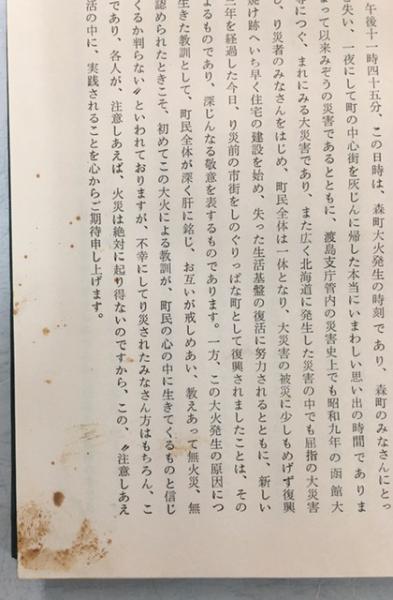 午後十一時四十五分、この日時は、森町大火発生の時刻であり、森町のみなさんにとっ
を失い、一夜にして町の中心街を灰じんに帰した本当にいまわしい思い出の時間でありま
まって以来みぞうの災害であるとともに、渡島支庁管内の災害史上でも昭和九年の函館大
等につぐ、まれにみる大災害であり、また広く北海道に発生した災害の中でも屈指の大災害
し、り災者のみなさんをはじめ、町民全体は一体となり、大災害の被災に少しもめげず復興
焼け跡へいち早く住宅の建設を始め、失った生活基盤の復活に努力されるとともに、新しい
三年を経過した今日、り災前の市街をしのぐりっぱな町として復興されましたことは、その
よるものであり、深じんなる敬意を表するものであります。一方、この大火発生の原因につ
生きた教訓として、町民全体が深く肝に銘じ、お互いが戒しめあい、教えあって無火災、無
認められたときこそ、初めてこの大火による教訓が、町民の心の中に生きてくるものと信じ
くるか判らない〟といわれておりますが、不幸にしてり災されたみなさん方はもちろん、こ
であり、各人が、注意しあえば、火災は絶対に起り得ないのですから、この、〝注意しあえ
活の中に、実践されることを心からご期待申し上げます。